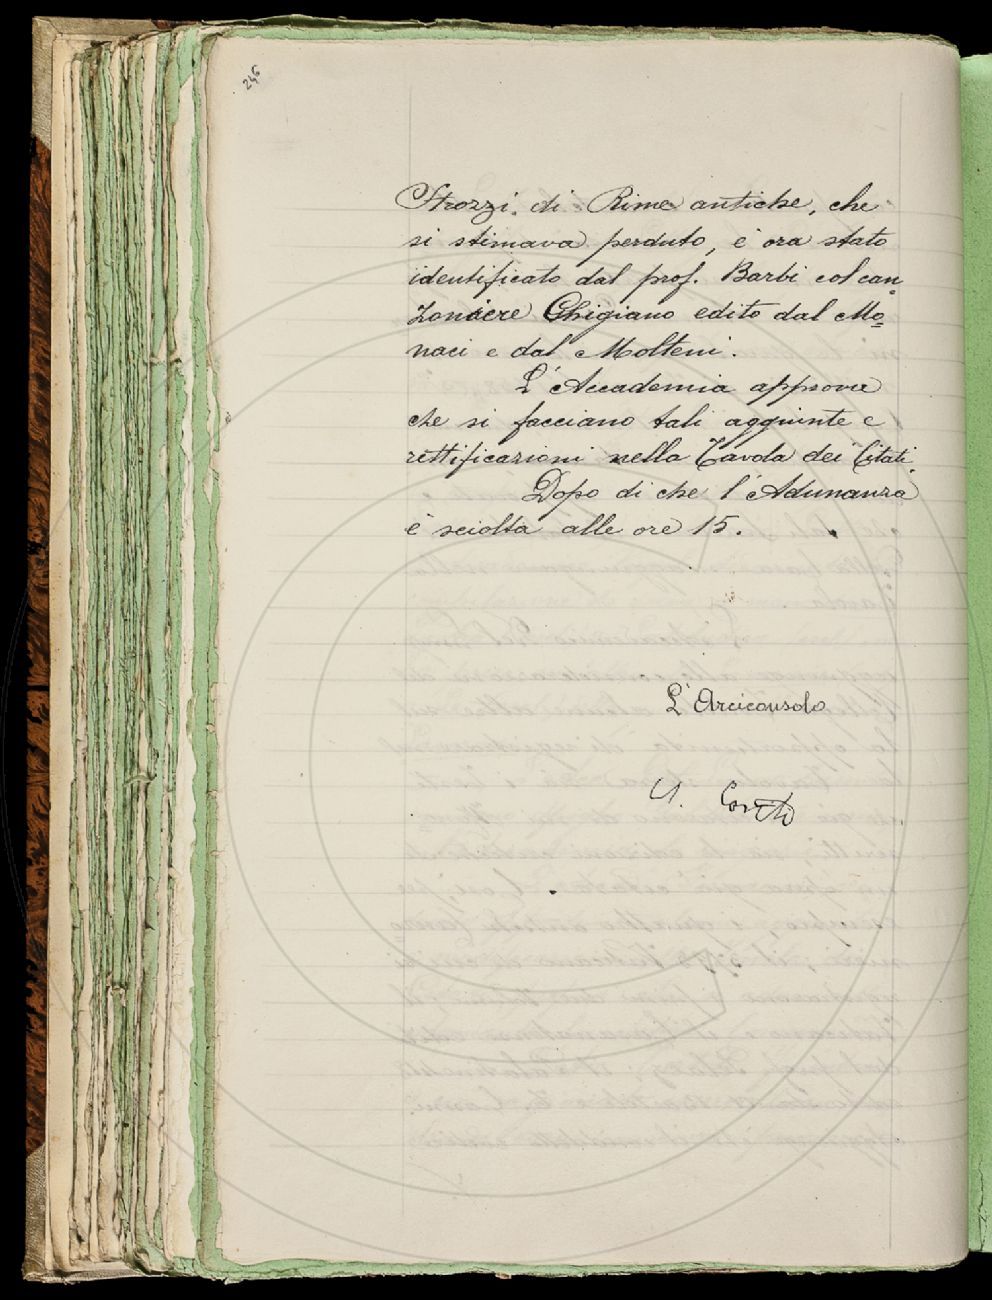 246
Strozzi. di Rime antiche, che
si stimava perduto, è ora stato
identificato dal prof. Barbi col can-
zoniere Chigiano edito dal Mo=
naci e dal Molteni.
L'Accademia approva
che si facciano tali aggiunte e
rettificazioni nella Tavola dei Citati.
Dopo di che l'Adunanza
è sciolta alle ore 15.
L'Arciconsolo